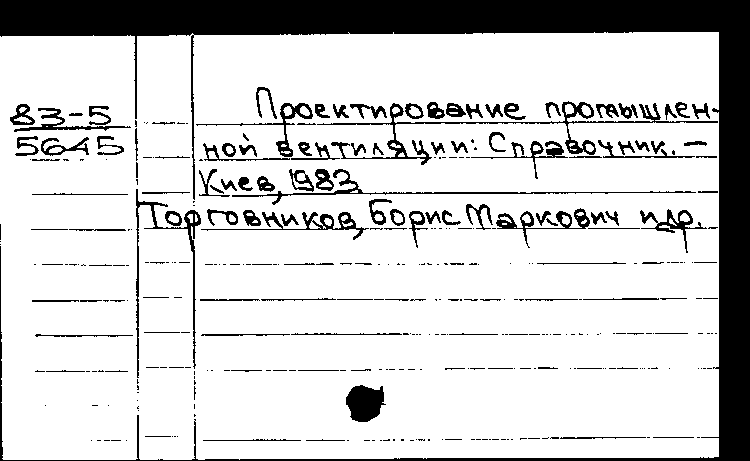 83-5
5645
Проектирование промышлен-
ной вентиляции: Справочник. —
Киев, 1983.
Торговников, Борис Маркович и др.